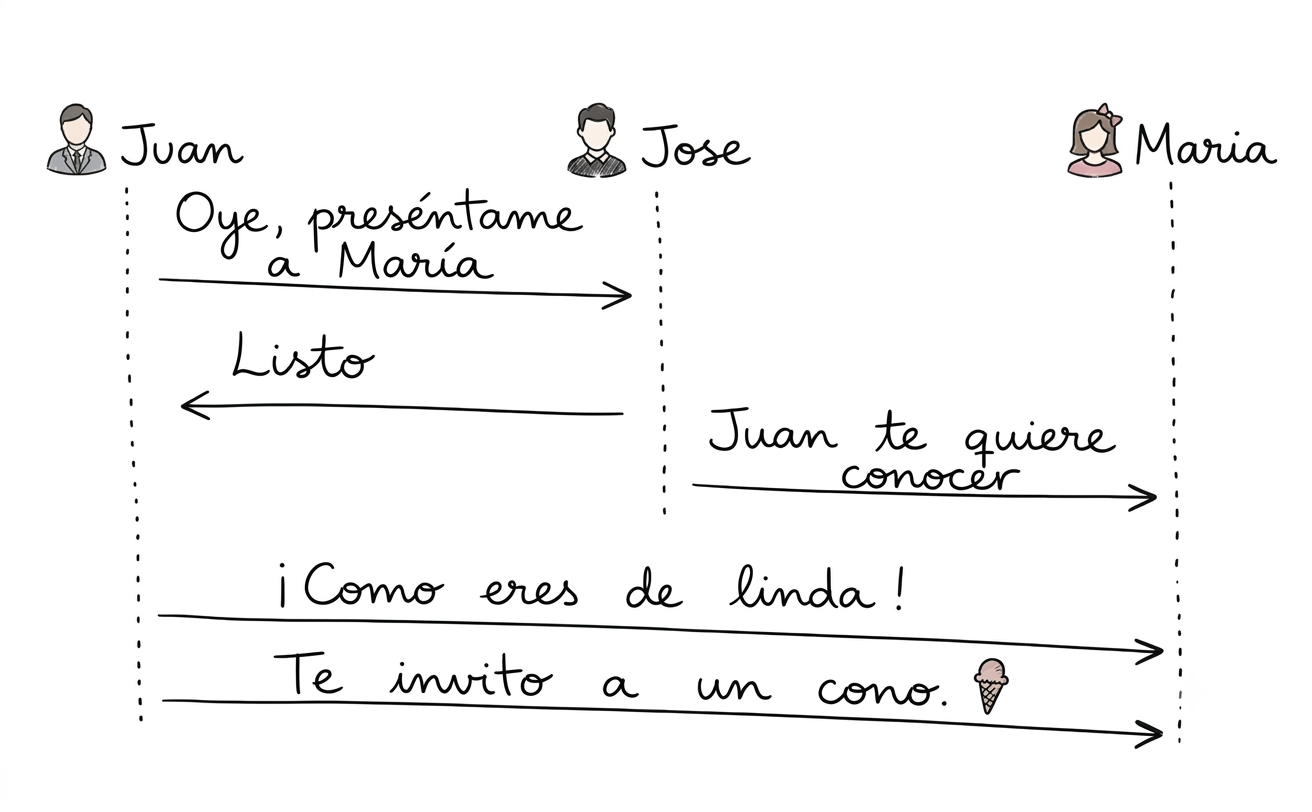 Juan
Jose
Maria
Oye, preséntame
a María
Listo
Juan te quiere
conocer
¡Como eres de linda!
Te invito a un cono.